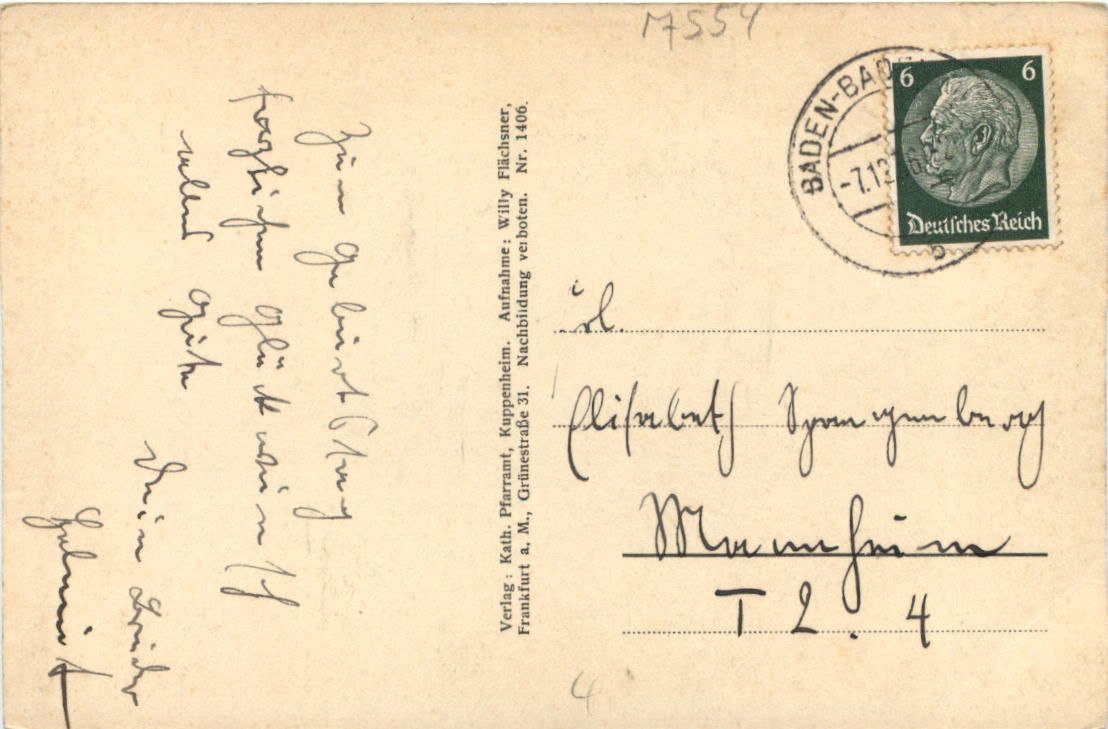 17554
BADEN-BADEN
-7.12
b
6 6
Deutsches Reich
Zum Geburtstag
herzlichen Glückwunsch
alles Gute
Dein Bruder
Helmut
Verlag: Kath. Pfarramt, Kuppenheim. Aufnahme: Willy Flächsner,
Frankfurt a. M., Grünestraße 31. Nachbildung verboten. Nr. 1406.
Frl.
Elisabeth Spangenberg
Mannheim
T 2. 4
4